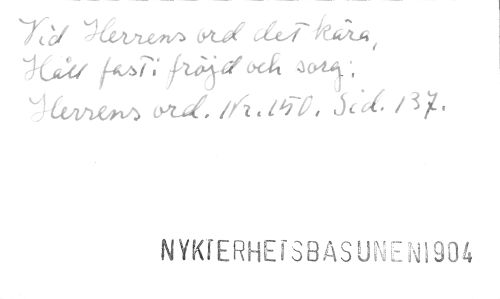 Vid Herrens ord det kära,
Håll fast i fröjd och sorg;
Herrens ord. Nr. 150. Sid. 137.
NYKTERHETSBASUNEN 1904